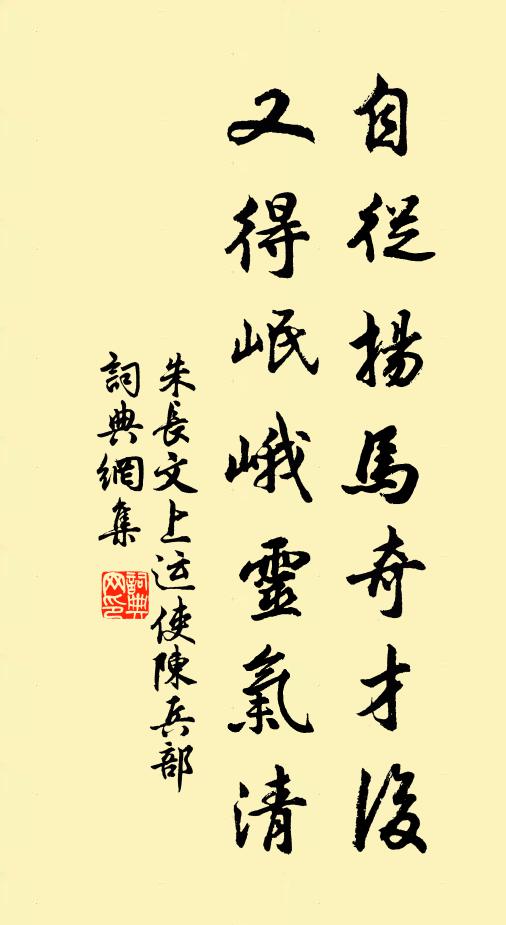 自從揚馬奇才後
又得岷峨靈氣清
朱長文上运使陳兵部
詞典網集
詞典
网印